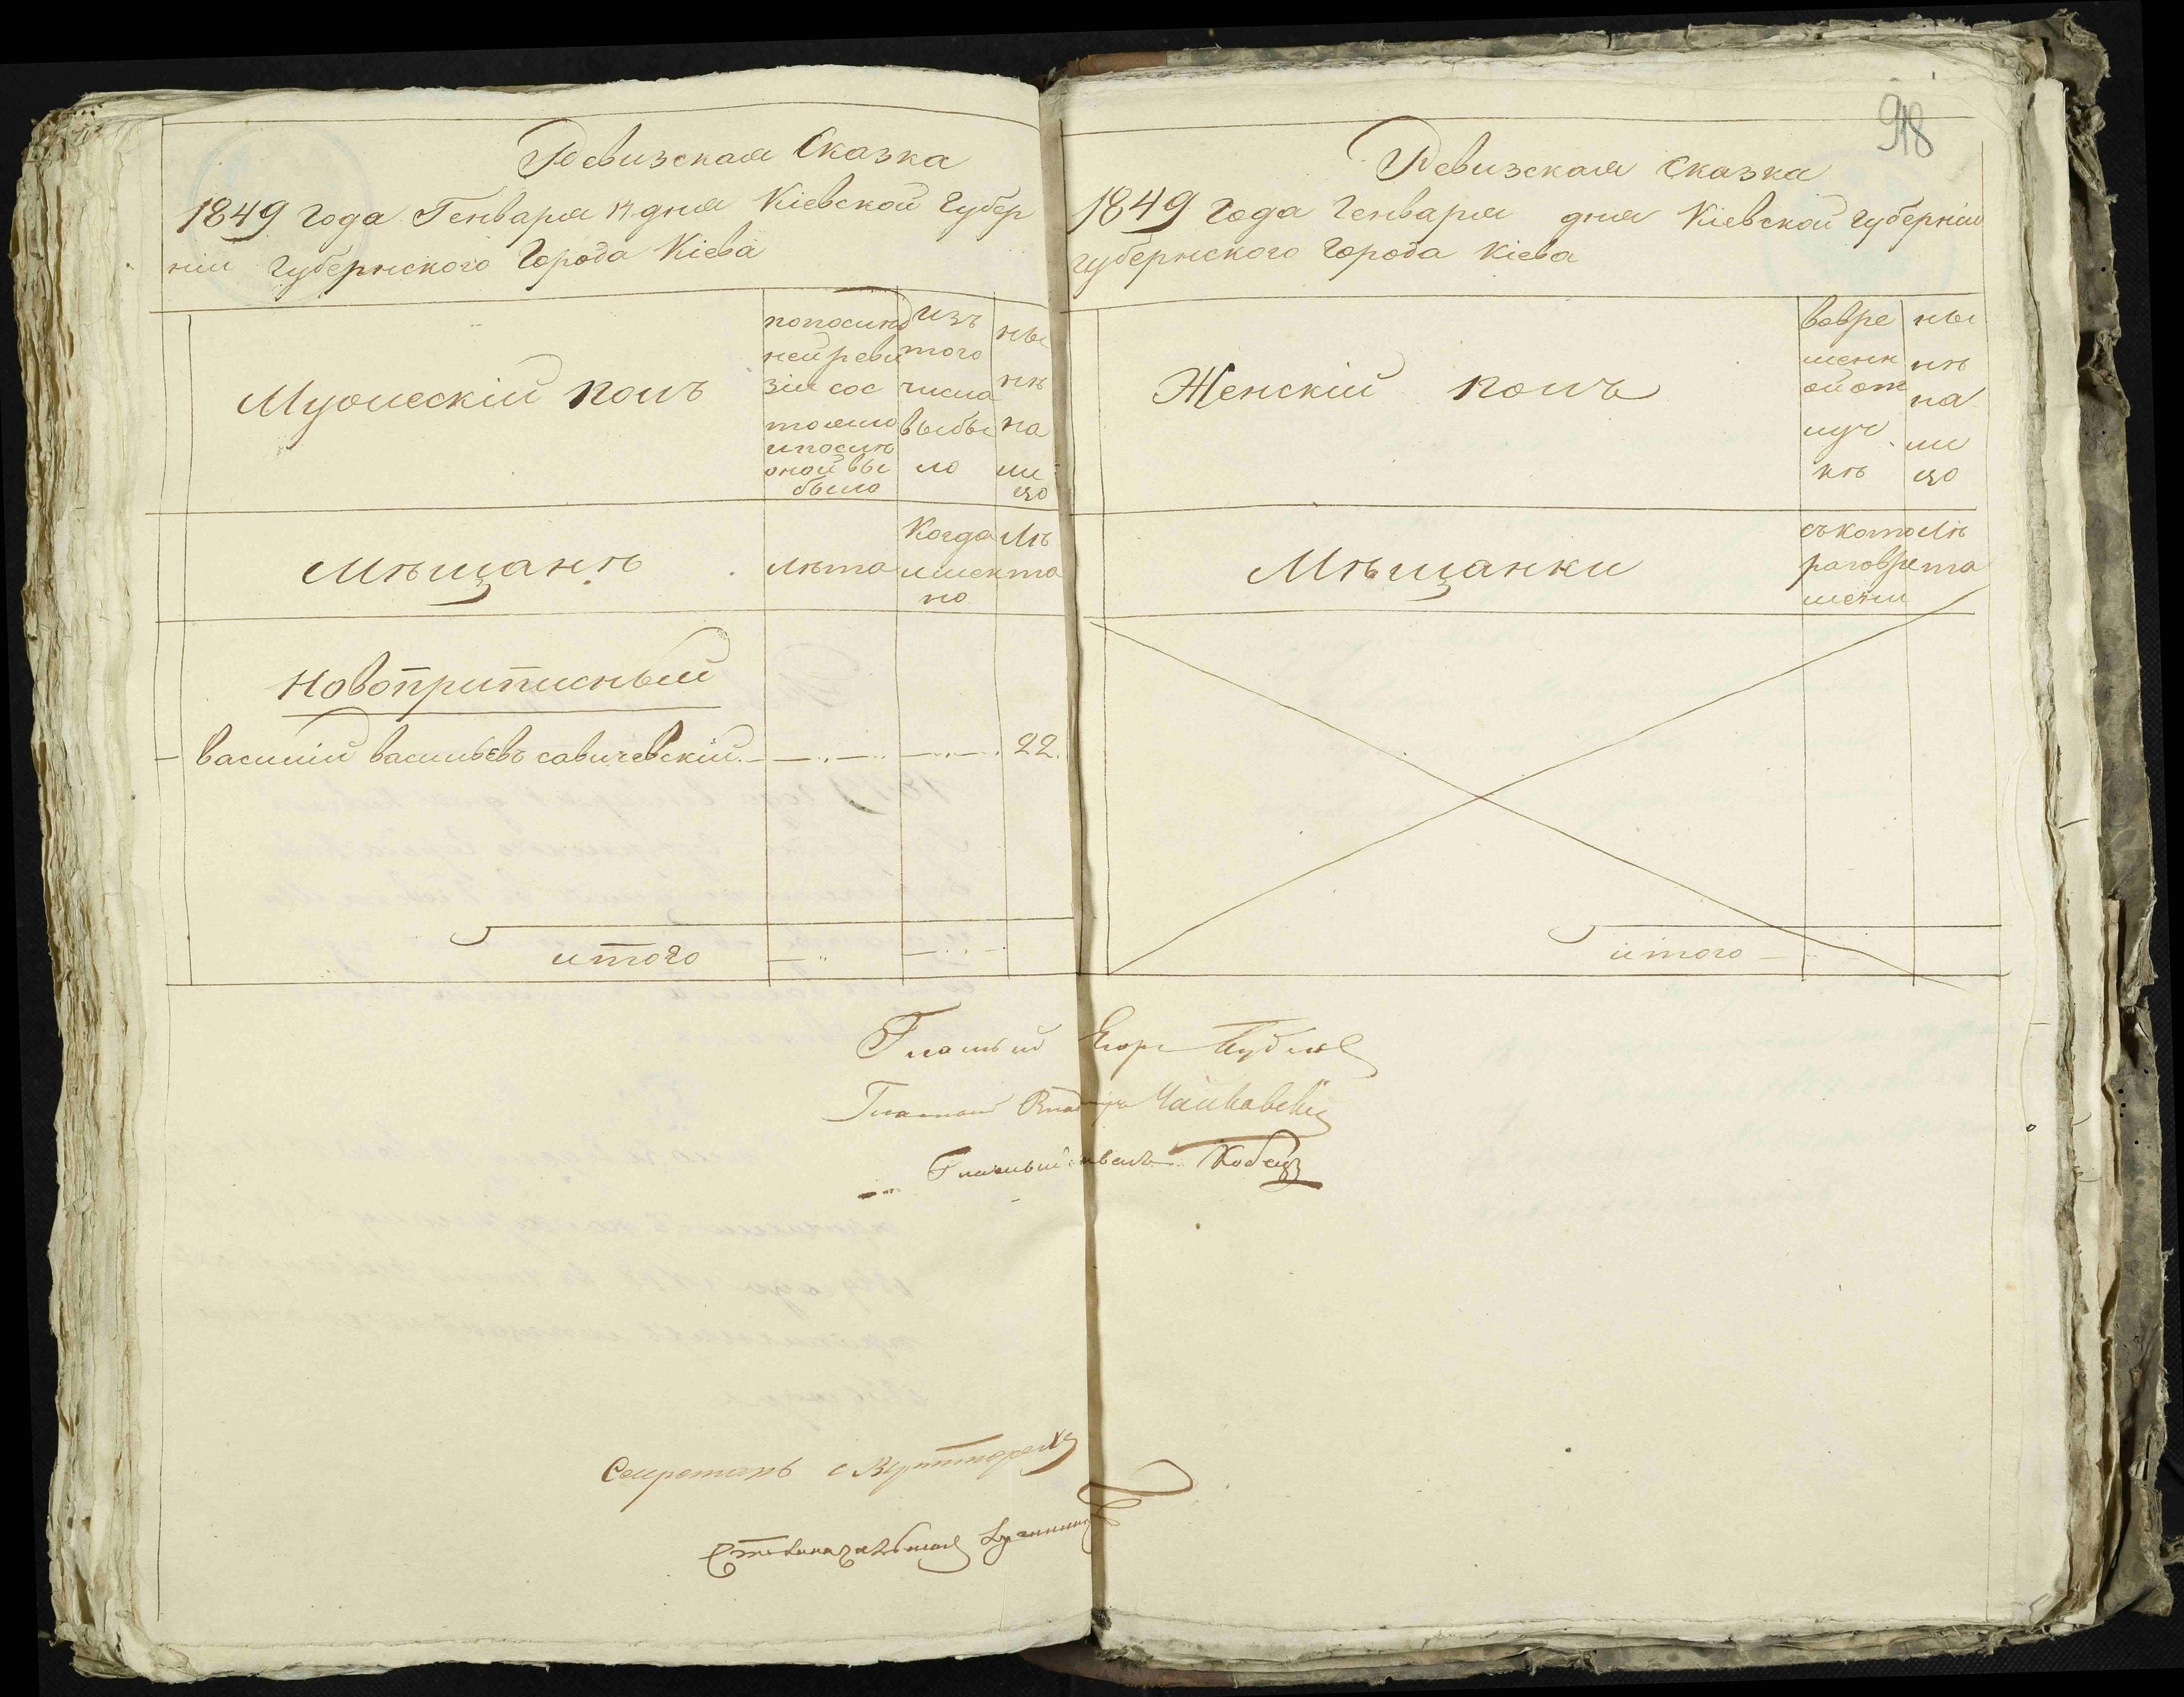 Ревизская Сказка
1849 года Генваря 14 дня Кіевской Губер
ніи Губернского Города Кіева
Мужескій полъ
попослед
ней реви
зіи сос
тояло
ипослѣ
оной вы
было
изъ
того
числа
выбы
ло
ны
нѣ
на
ли
цо
Мѣщанѣ
Лѣта
Когда
имен
но
Лѣ
та
Новоприписный
Василій Васильевъ Савичевскій 22.
итого
918
Ревизская Сказка
1849 Года Генваря дня Кіевской Губерніи
Губернского Города Кіева
Женскій полъ
вовре
менн
ой от
луч
кѣ
ны
нѣ
на
ли
цо
Мѣщанки
съ кото
раго вре
мени
Лѣ
та
итого
Гласный Егоръ
Гласный Чайковскій
Гласный Кобецъ
Секретарь
Столоначальникъ